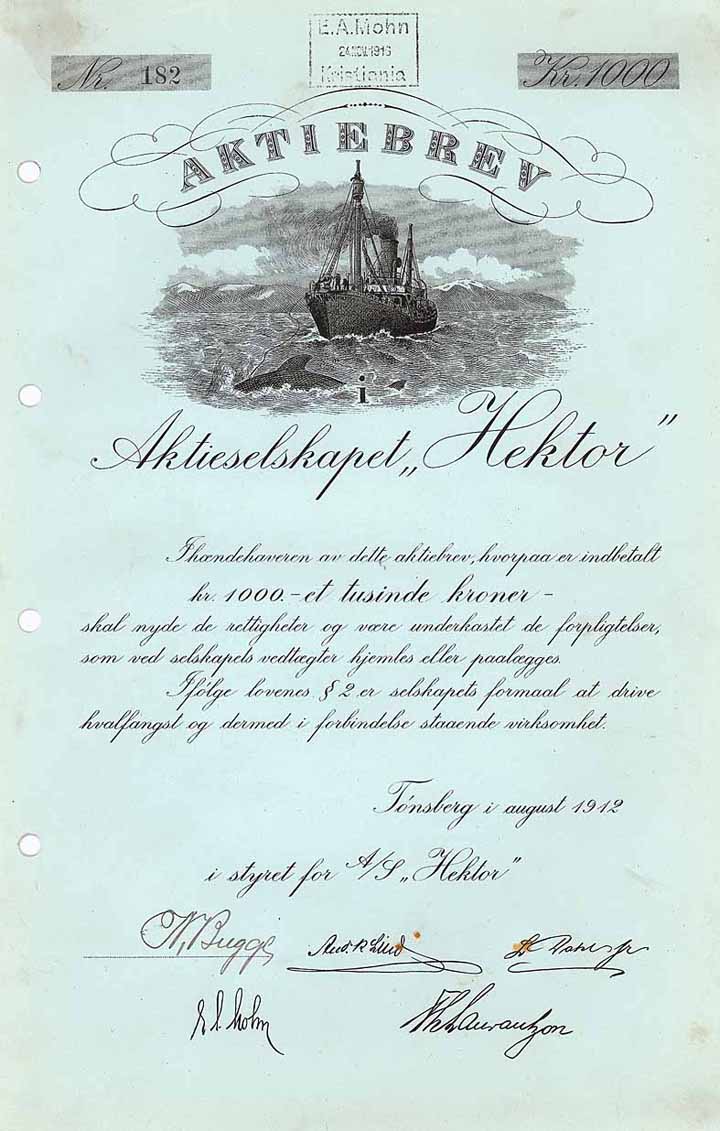 E.A.Mohn
24 NOV. 1916
Kristiania
Nr. 182
Kr. 1000
AKTIEBREV
i
Aktieselskapet „Hektor”
Ihændehaveren av dette aktiebrev, hvorpaa er indbetalt
kr. 1000.- et tusinde kroner -
skal nyde de rettigheter og være underkastet de forpligtelser,
som ved selskapets vedtægter hjemles eller paalægges.
Ifølge lovenes § 2 er selskapets formaal at drive
hvalfangst og dermed i forbindelse staaende virksomhet.
Tónsberg i august 1912
i styret for A/S „Hektor”
N. Bugge
And. R. Lund
L. Holm
Th. Laurantzon